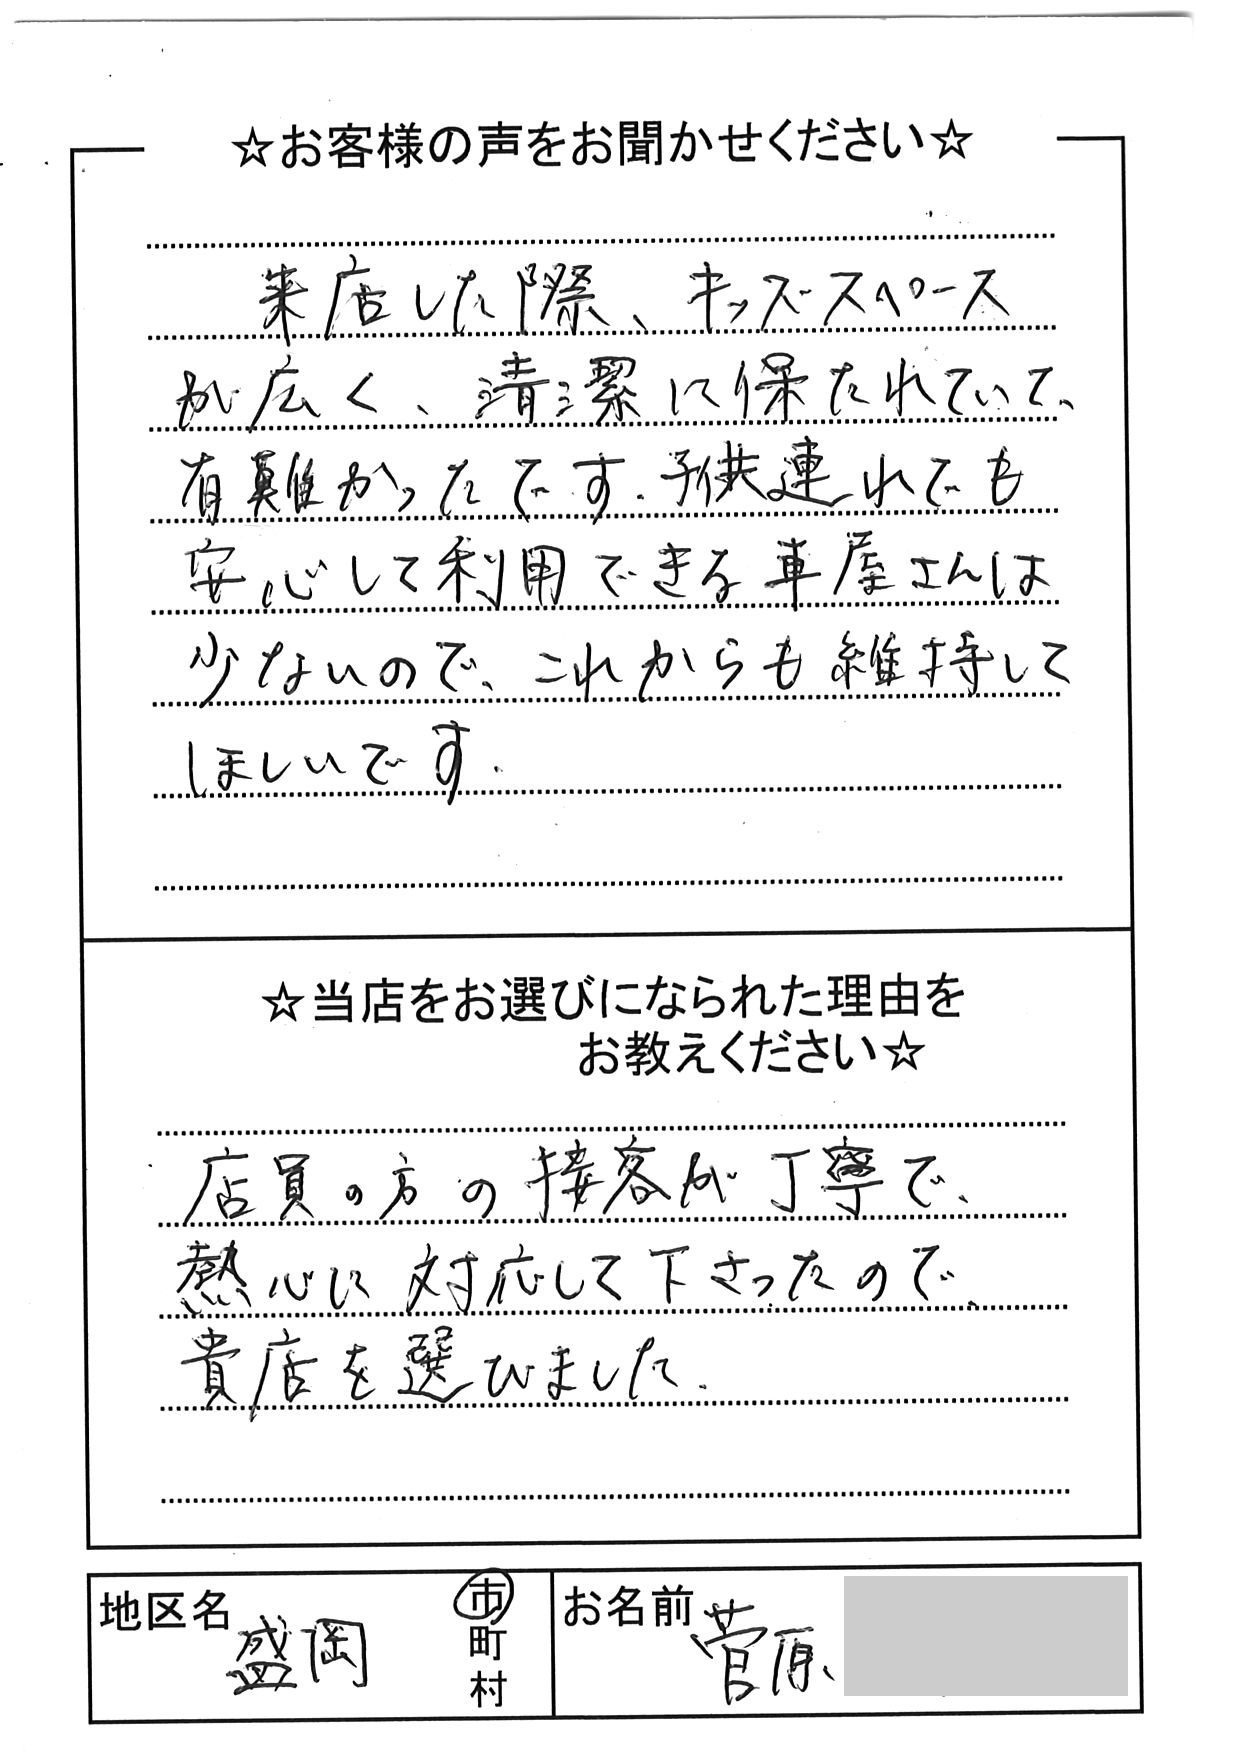 ☆お客様の声をお聞かせください☆
来店した際、キッズスペース
が広く、清潔に保たれていて、
有難かったです。子供連れでも
安心して利用できる車屋さんは
少ないので、これからも維持して
ほしいです。
☆当店をお選びになられた理由を
お教えください☆
店員の方の接客が丁寧で、
熱心に対応して下さったので、
貴店を選びました。
地区名 盛岡 市
町
村
お名前 菅原